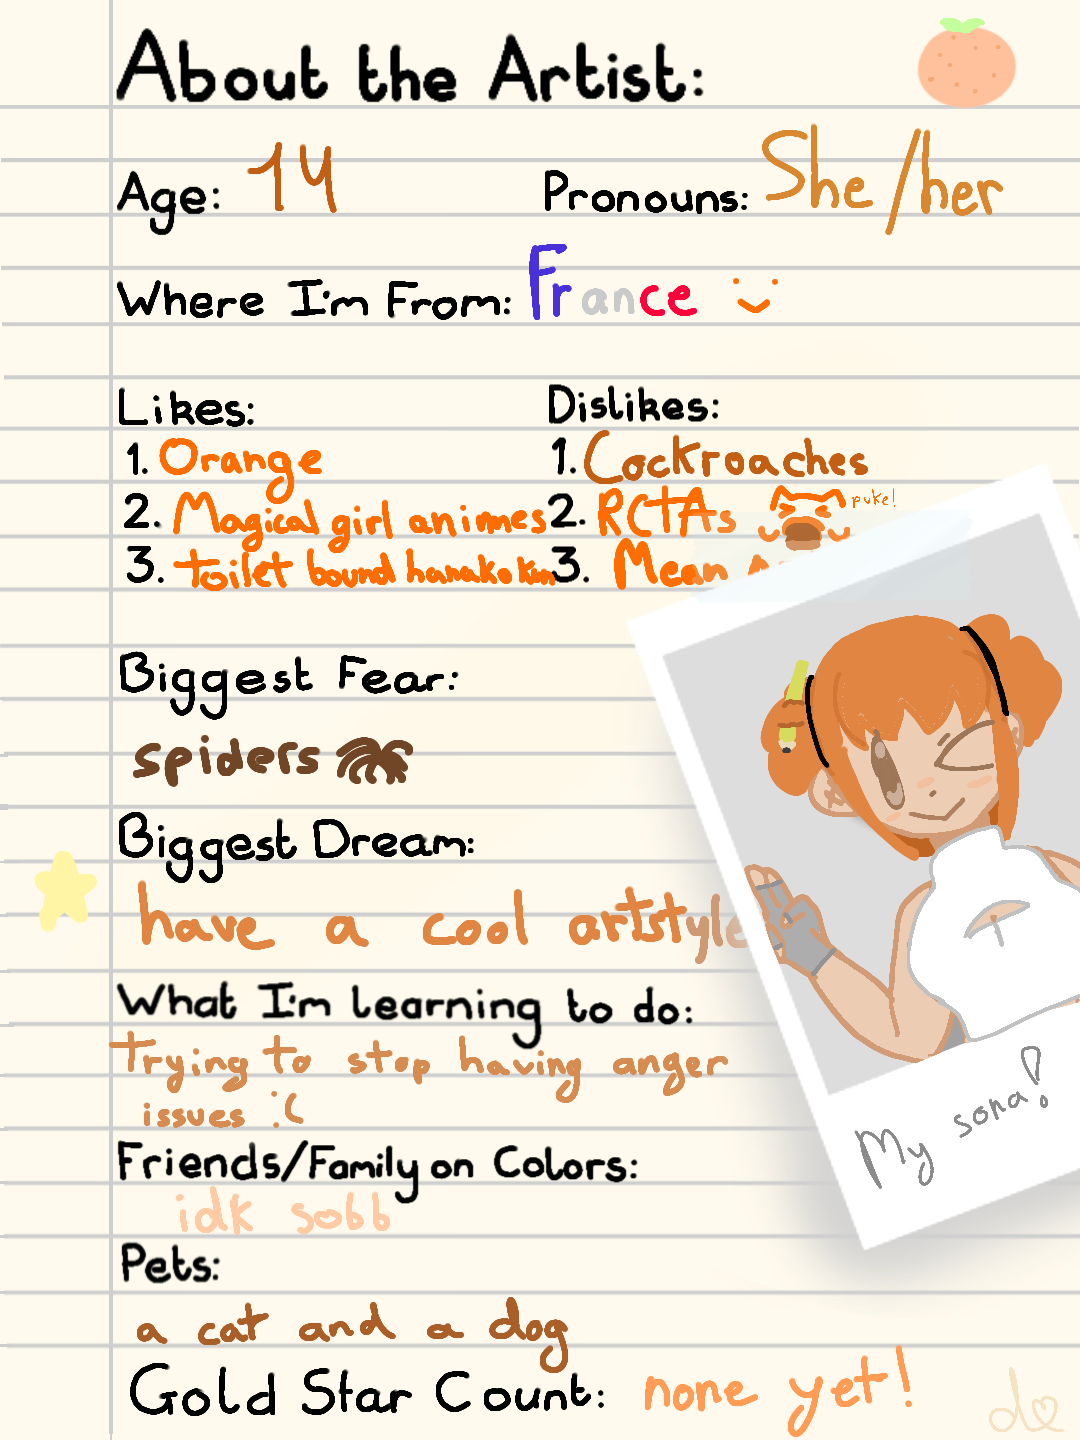 About the Artist:
Age: 14 Pronouns: She/her
Where I'm From: France
Likes: Dislikes:
1. Orange 1. Cockroaches
2. Magical girl animes 2. RCTAs puke!
3. toilet bound hanako kun 3. Mean
Biggest Fear:
spiders
Biggest Dream:
have a cool artstyle
What I'm learning to do:
Trying to stop having anger
issues :(
My sona!
Friends/Family on Colors:
idk sobb
Pets:
a cat and a dog
Gold Star Count: none yet!